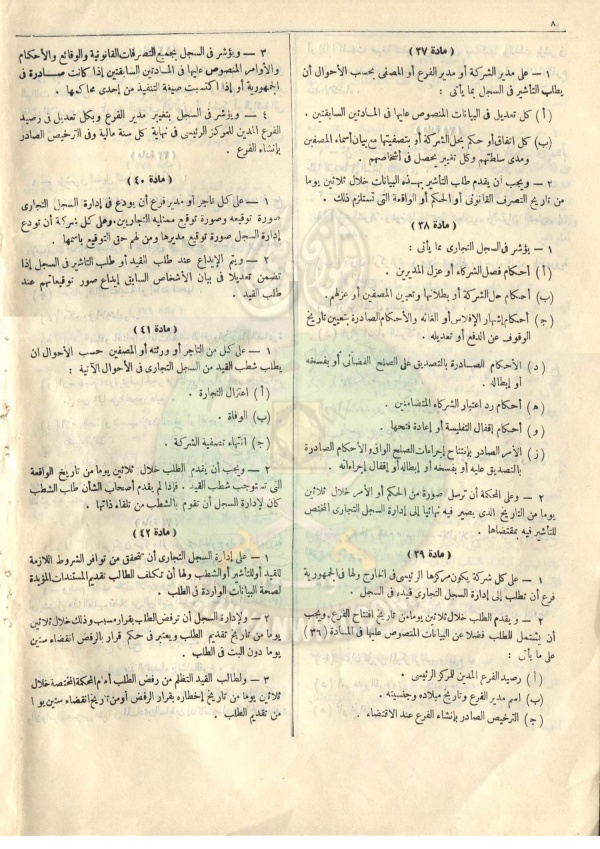 ٨
( مادة ٣٧ )
١ — على مدير الشركة أو مدير الفرع أو المصفى بحسب الأحوال أن
يطلب التأشير فى السجل بما يأتى :
( أ ) كل تعديل فى البيانات المنصوص عليها فى المادتين السابقتين .
(ب) كل اتفاق أو حكم بحل الشركة أو بتصفيتها مع بيان أسماء المصفين
ومدى سلطتهم وكل تغيير يحصل فى أشخاصهم .
٢ — ويجب ان يقدم طلب التأشير بهذه البيانات خلال ثلاثين يوما
من تاريخ التصرف القانونى أو الحكم أو الواقعة التى تستلزم ذلك .
( مادة ٣٨ )
١ — يؤشر فى السجل التجارى بما يأتى :
( أ ) أحكام فصل الشركاء أو عزل المديرين .
(ب) أحكام حل الشركة أو بطلانها وتعيين المصفين أو عزلهم .
(ج) أحكام إشهار الإفلاس أو الغائه والأحكام الصادرة بتعيين تاريخ
الوقوف عن الدفع أو تعديله .
(د) الأحكام الصادرة بالتصديق على الصلح القضائى أو بفسخه
أو إبطاله .
(ه) أحكام رد اعتبار الشركاء المتضامنين .
(و) أحكام إقفال التفليسة أو إعادة فتحها .
(ز) الأمر الصادر بإفتتاح إجراءات الصلح الواقى والأحكام الصادرة
بالتصديق عليه أو بفسخه أو إبطاله أو إقفال إجراءاته .
٢ — وعلى المحكمة أن ترسل صورة من الحكم أو الأمر خلال ثلاثين
يوما من التاريخ الذى يصير فيه نهائيا إلى إدارة السجل التجارى المختص
للتأشير فيه بمقتضاها .
( مادة ٣٩ )
١ — على كل شركة يكون مركزها الرئيسى فى الخارج ولها فى الجمهورية
فرع أن تطلب إلى إدارة السجل التجارى قيده فى السجل .
٢ — ويقدم الطلب خلال ثلاثين يوما من تاريخ افتتاح الفرع ويجب
أن يشتمل الطلب فضلا عن البيانات المنصوص عليها فى المادة (٣٦)
على ما يأتى :
( أ ) رصيد الفرع المدين للمركز الرئيسى .
(ب) اسم مدير الفرع وتاريخ ميلاده وجنسيته .
(ج) الترخيص الصادر بإنشاء الفرع عند الاقتضاء .
٣ — ويؤشر فى السجل بجميع التصرفات القانونية والوقائع والأحكام
والأوامر المنصوص عليها فى المادتين السابقتين إذا كانت صادرة فى
الجمهورية أو إذا اكتسبت صيغة التنفيذ من إحدى محاكمها .
٤ — ويؤشر فى السجل بتغيير مدير الفرع وبكل تعديل فى رصيد
الفرع المدين للمركز الرئيسى فى نهاية كل سنة مالية وفى الترخيص الصادر
بإنشاء الفرع .
( مادة ٤٠ )
١ — على كل تاجر أو مدير فرع أن يودع فى إدارة السجل التجارى
صورة توقيعه وصورة توقيع ممثليه التجاريين، وعلى كل شركة أن تودع
إدارة السجل صورة توقيع مديرها ومن لهم حق التوقيع باسمها .
٢ — ويتم الإيداع عند طلب القيد أو طلب التأشير فى السجل إذا
تضمن تعديلا فى بيان الأشخاص السابق إيداع صور توقيعاتهم عند
طلب القيد .
( مادة ٤١ )
١ — على كل من التاجر أو ورثته أو المصفين حسب الأحوال ان
يطلب شطب القيد من السجل التجارى فى الأحوال الآتية :
( أ ) اعتزال التجارة .
(ب) الوفاة .
(ج) انتهاء تصفية الشركة .
٢ — ويجب أن يقدم الطلب خلال ثلاثين يوما من تاريخ الواقعة
التى تستوجب شطب القيد . فإذا لم يقدم أصحاب الشأن طلب الشطب
كان لإدارة السجل أن تقوم بالشطب من تلقاء ذاتها .
( مادة ٤٢ )
١ — على إدارة السجل التجارى أن تتحقق من توافر الشروط اللازمة
للقيد أو للتأشير أو الشطب ولها أن تكلف الطالب تقديم المستندات المؤيدة
لصحة البيانات الواردة فى الطلب .
٢ — ولإدارة السجل أن ترفض الطلب بقرار مسبب وذلك خلال ثلاثين
يوما من تاريخ تقديم الطلب ويعتبر فى حكم قرار بالرفض انقضاء ستين
يوما دون البت فى الطلب .
٣ — ولطالب القيد التظلم من رفض الطلب أمام المحكمة المختصة خلال
ثلاثين يوما من تاريخ إخطاره بقرار الرفض أو من تاريخ انقضاء ستين يوما
من تقديم الطلب .